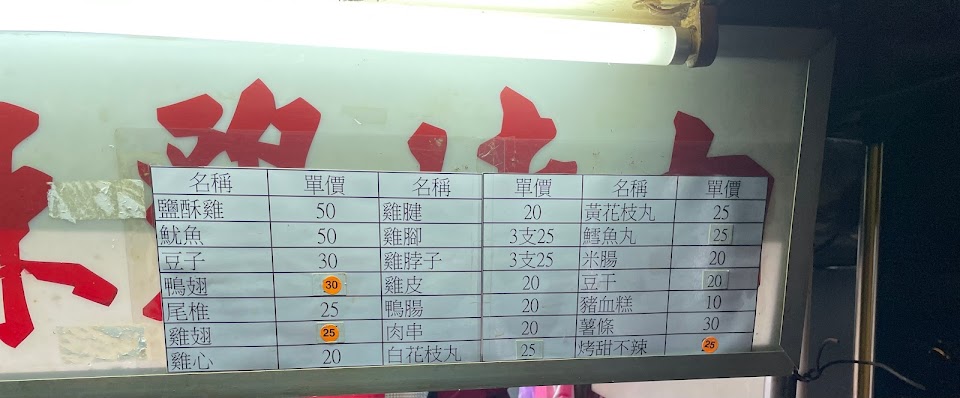 名稱 單價 名稱 單價 名稱 單價
鹽酥雞 50 雞腱 20 黃花枝丸 25
魷魚 50 雞腳 3支25 鱈魚丸 25
豆子 30 雞脖子 3支25 米腸 20
鴨翅 30 雞皮 20 豆干 20
尾椎 25 鴨腸 20 豬血糕 10
雞翅 25 肉串 20 薯條 30
雞心 20 白花枝丸 25 烤甜不辣 25